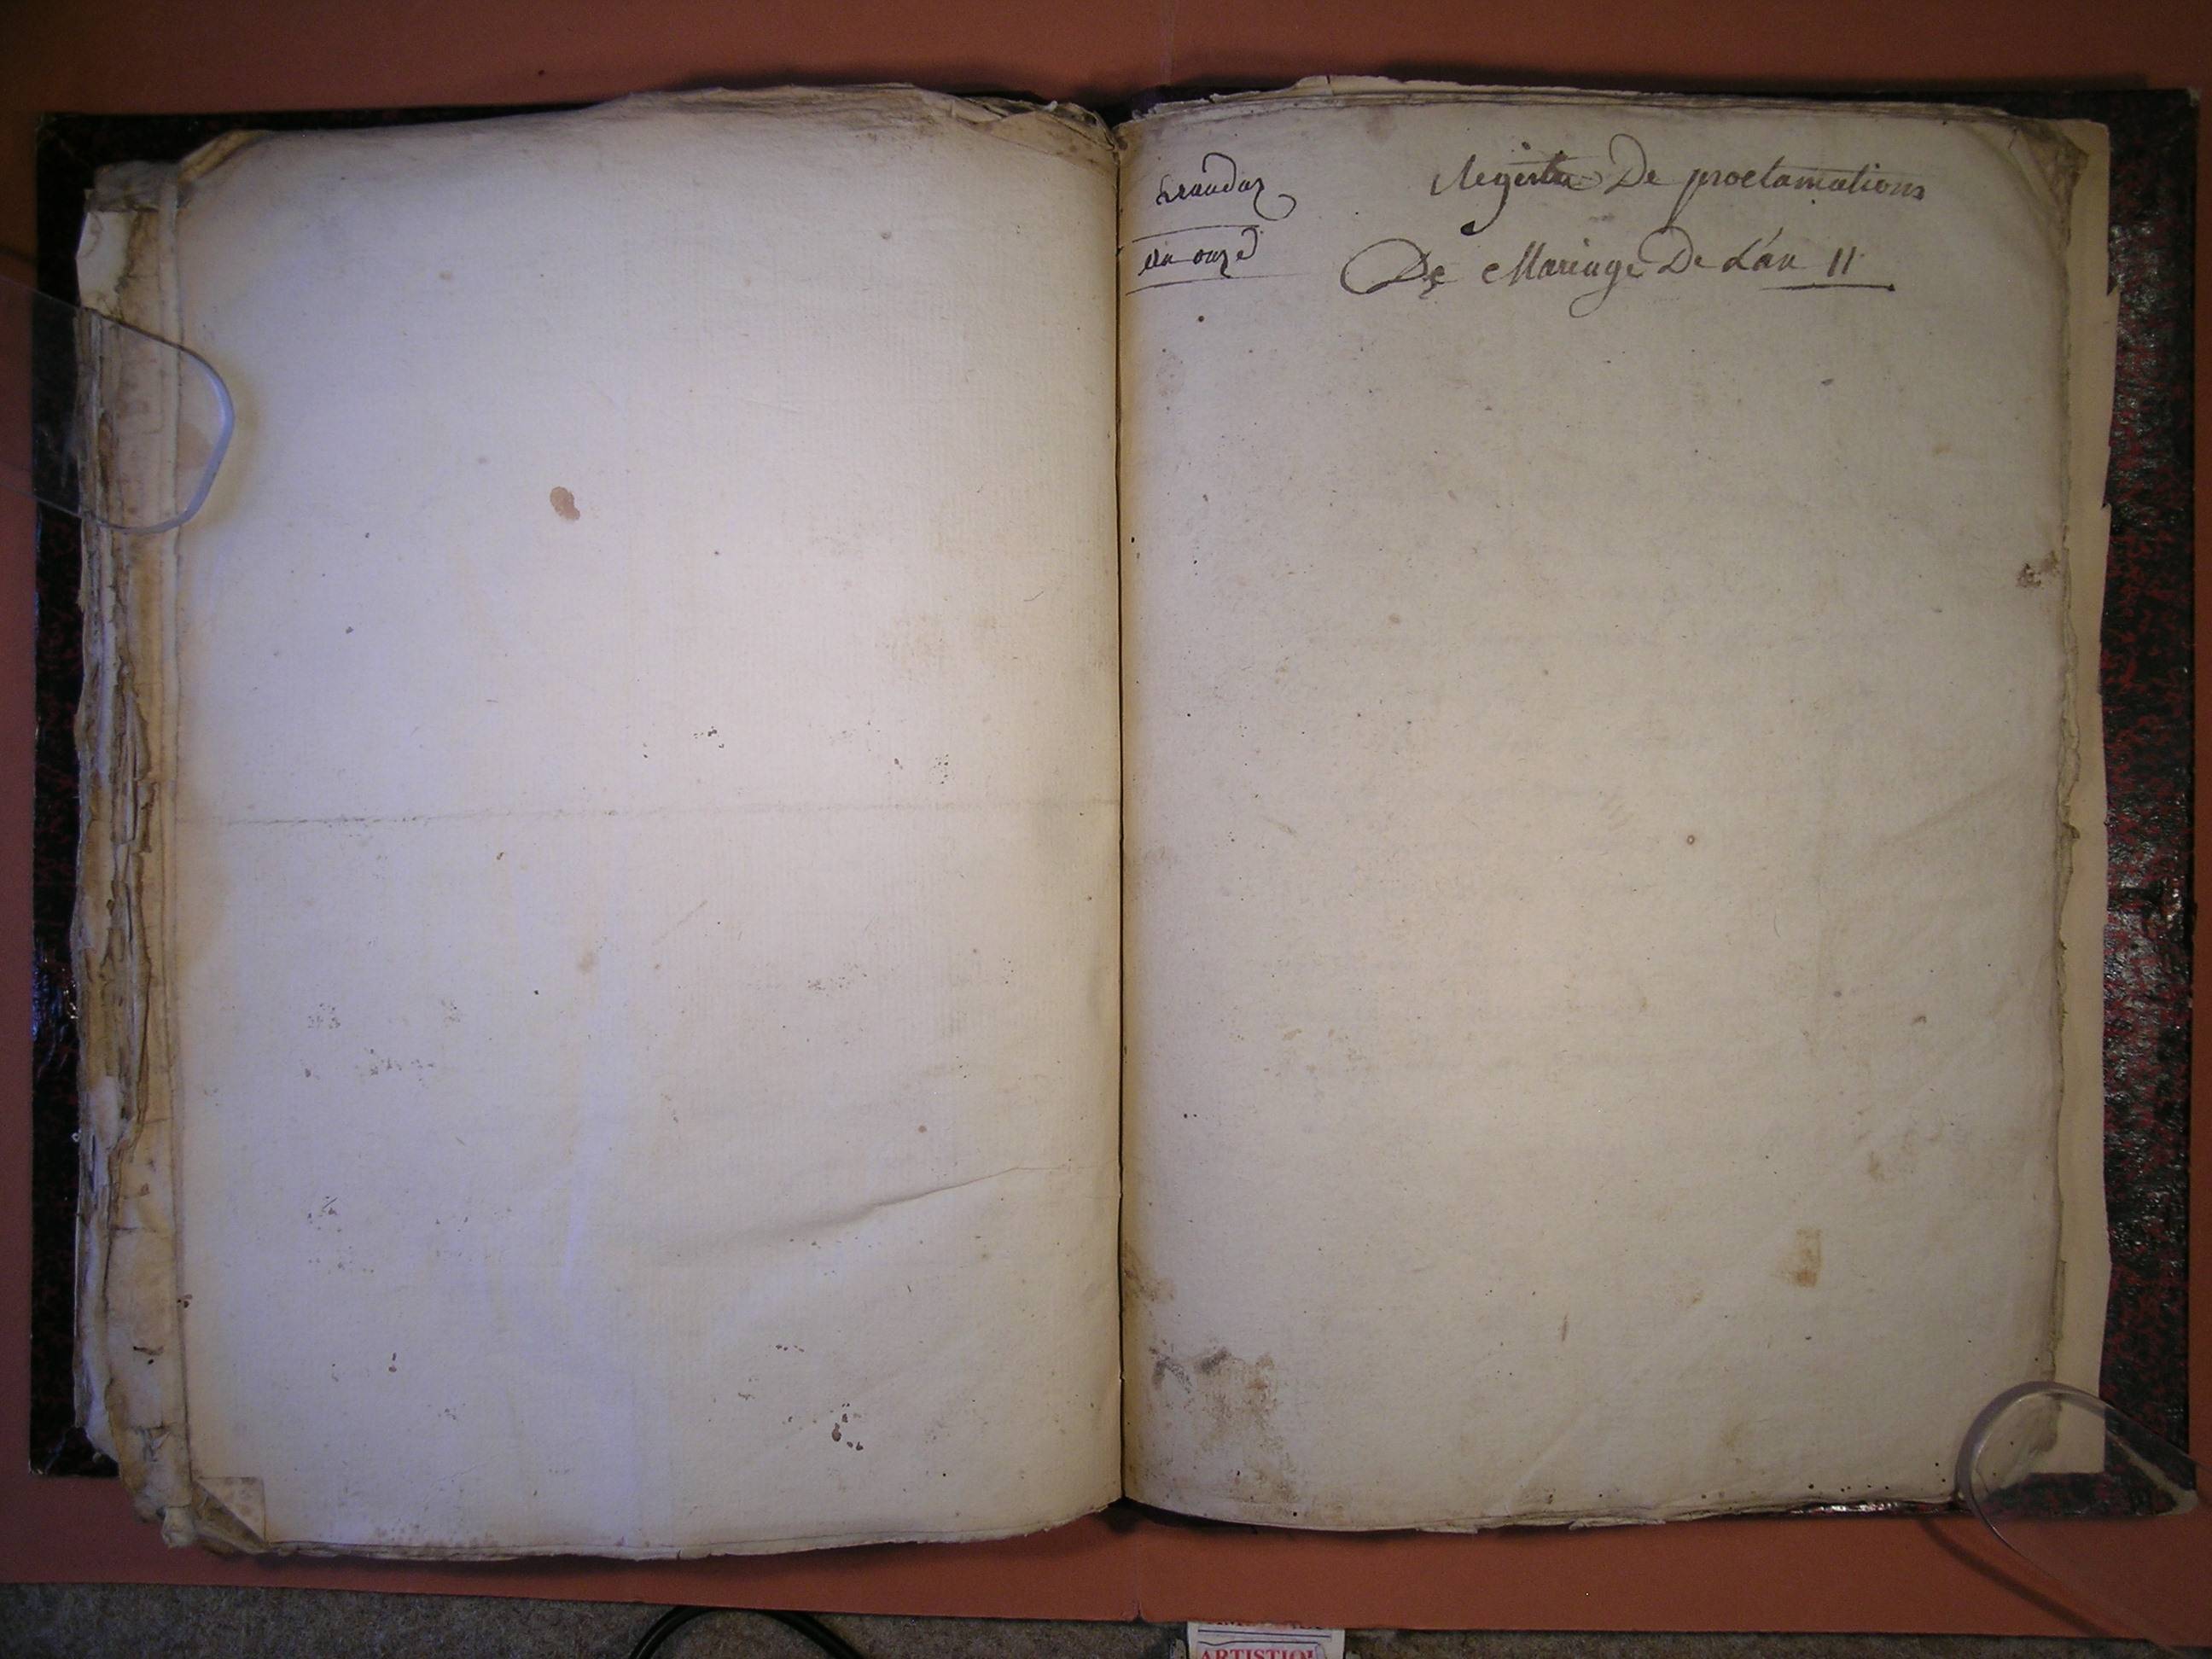 an onze
Registre De proclamations
De Mariage De L'an 11
ARTISTIQU